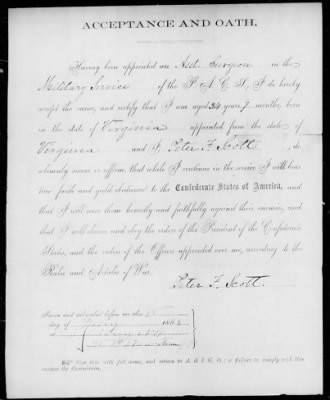 ACCEPTANCE AND OATH.
Having been appointed an Asst. Surgeon in the
Military Service of the P. A. C. S., I do hereby
accept the same, and certify that I am aged 34 years, 7 months, born
in the state of Virginia appointed from the state of
Virginia and I, Peter F. Scott, do
solemnly swear or affirm that while I continue in the service I will bear
true faith and yield obedience to the Confederate States of America, and
that I will serve them honestly and faithfully against their enemies, and
that I will observe and obey the orders of the President of the Confederate
States, and the orders of the Officers appointed over me, according to the
Rules and Articles of War.
Peter F. Scott.
Sworn and subscribed before me this
day of 186
at
Sign this with full name, and return to A. & I. G. O.; a failure to comply with this
vacates the Commission.